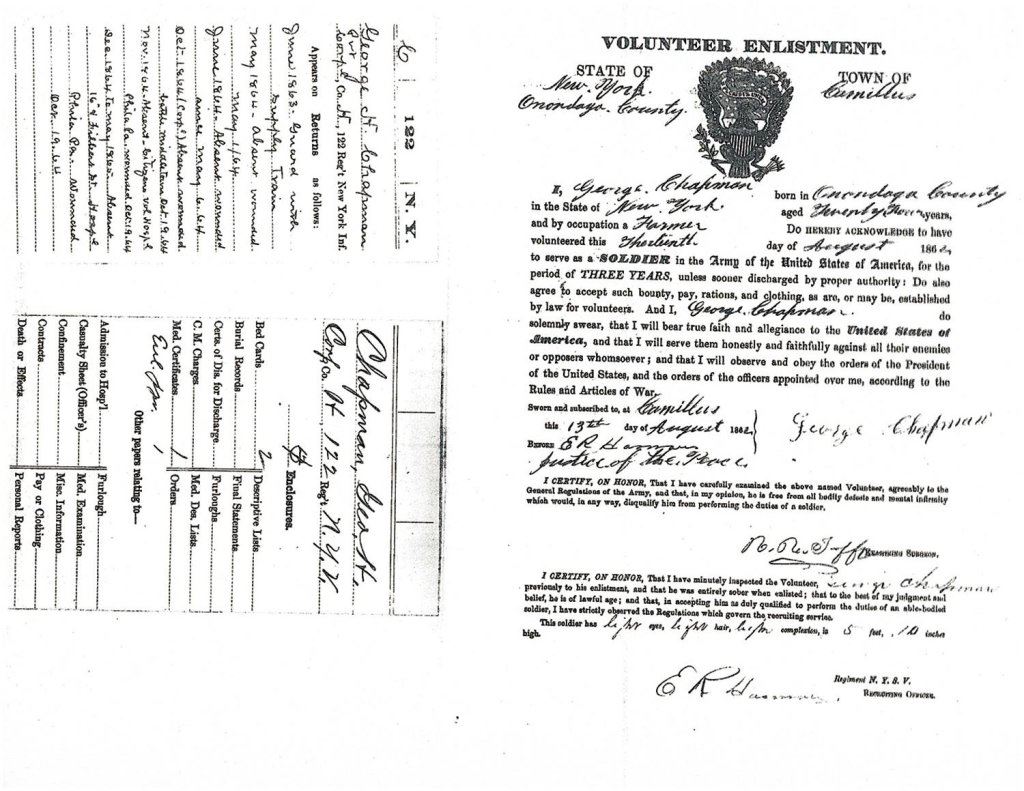 C | 122 | N. Y.
George H. Chapman
Pvt
Corp, Co. H, 122 Reg't New York Inf.
Appears on Returns as follows:
June 1863. Guard with
Supply Train
May 1864 - absent wounded.
May 6/64
June 1864 - Absent wounded
since May 6. 64
Oct. 1864 (Corp) Absent wounded
battle Middletown Oct. 19. 64
Nov. 1864. Absent - Citizens vol Hosp'l
Phila Pa. wounded Oct. 19. 64
Dec. 1864 to May 1865. Absent
16" & Filbert St. Hosp'l
Phila Pa. Wounded
Oct. 19. 64
Chapman, Geo. H.
Corp, Co. H, 122 Reg't, N.Y.V.
Enclosures.
Bed Cards
2 Descriptive Lists
Burial Records
Final Statements
Certs. of Dis. for Discharge
Furloughs
C. M. Charges
Med. Des. Lists
Med. Certificates 1
Orders
Other papers relating to—
Admission to Hosp'l
Furlough
Casualty Sheet (Officer's)
Med. Examination
Confinement
Misc. Information
Contracts
Pay or Clothing
Death or Effects
Personal Reports
VOLUNTEER ENLISTMENT.
STATE OF TOWN OF
New York. Camillus
Onondaga County.
I, George Chapman born in Onondaga County
in the State of New York. aged Twenty years,
and by occupation a Farmer Do HEREBY ACKNOWLEDGE to have
volunteered this Thirteenth day of August 1862,
to serve as a SOLDIER in the Army of the United States of America, for the
period of THREE YEARS, unless sooner discharged by proper authority: Do also
agree to accept such bounty, pay, rations, and clothing, as are, or may be, established
by law for volunteers. And I, George Chapman. do
solemnly swear, that I will bear true faith and allegiance to the United States of
America, and that I will serve them honestly and faithfully against all their enemies
or opposers whomsoever; and that I will observe and obey the orders of the President
of the United States, and the orders of the officers appointed over me, according to the
Rules and Articles of War.
Sworn and subscribed to, at Camillus
this 13th day of August 1862,
George Chapman
BEFORE E R
Justice of the Peace
I CERTIFY, ON HONOR, That I have carefully examined the above named Volunteer, agreeably to the
General Regulations of the Army, and that, in my opinion, he is free from all bodily defects and mental infirmity
which would, in any way, disqualify him from performing the duties of a soldier.
EXAMINING SURGEON.
I CERTIFY, ON HONOR, That I have minutely inspected the Volunteer, George Chapman
previously to his enlistment, and that he was entirely sober when enlisted; that to the best of my judgment and
belief, he is of lawful age; and that, in accepting him as duly qualified to perform the duties of an able-bodied
soldier, I have strictly observed the Regulations which govern the recruiting service.
This soldier has light eyes, light hair, light complexion, is 5 feet, 10 inches
high.
E R
Regiment N. Y. S. V.
RECRUITING OFFICER.